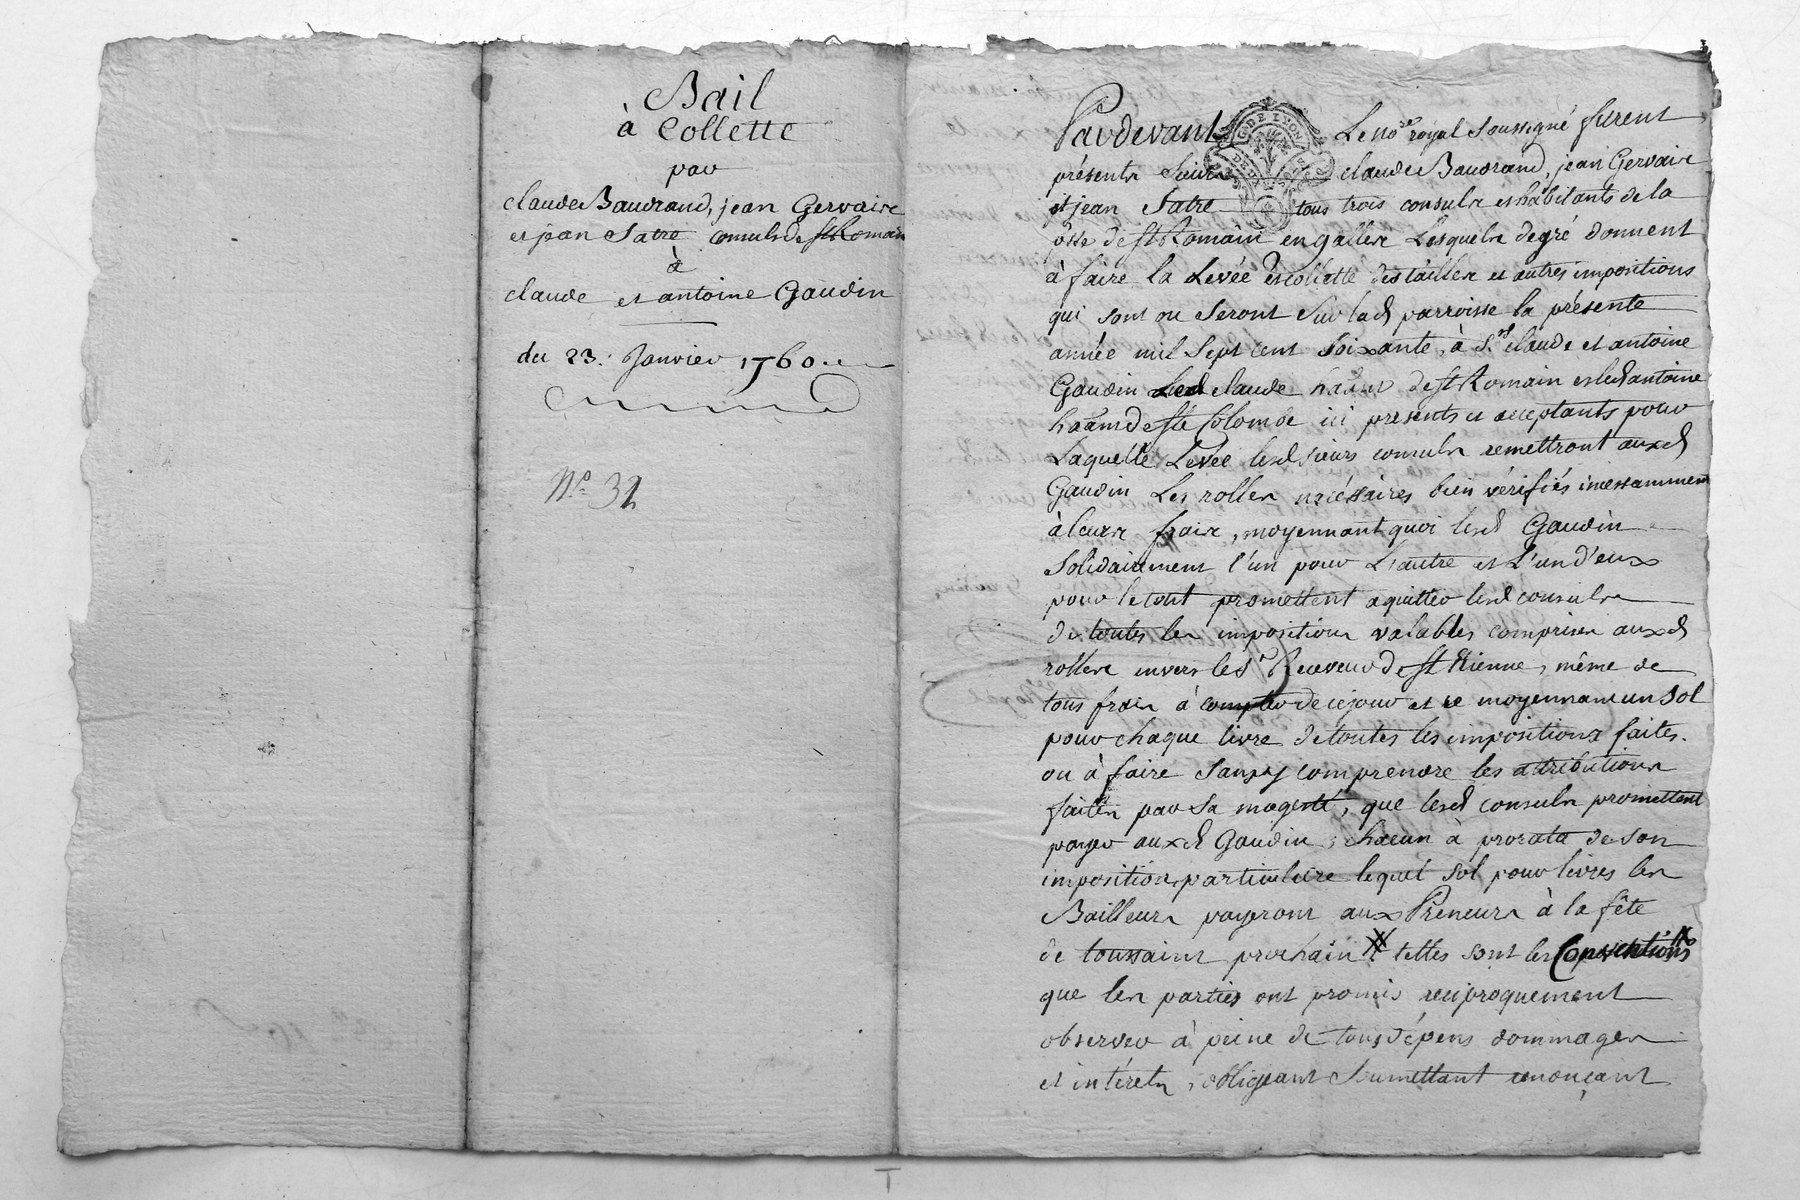 Bail
à Collette
par
claude Baudrand, jean Gervaise
et jean Satre consuls de st Romain
à
claude et antoine Gaudin
du 23. Janvier 1760
No 32
Pardevant Le no.re royal soussigné furent
présents Sieurs claude Baudrand, jean Gervaise
et jean Satre tous trois consuls et habitants de la
psse de st Romain en gallere Lesquels de gré donnent
à faire la Levée et collette des tailles et autres impositions
qui sont ou seront sur lad parroisse la présente
année mil sept cent soixante, à Srs claude et antoine
Gaudin led claude habitt de st Romain et led antoine
de ste Colombe ici presents et acceptants pour
Laquelle Levée lesd sieurs consuls remettront auxd
Gaudin Les rolles nécessaires bien vérifiés incessamment
à leurs frais, moyennant quoi lesd Gaudin
solidairement l'un pour L'autre et L'un d'eux
pour le tout promettent aquitter lesd consuls
de toutes les impositions valables comprises auxd
rolles envers le Sr Receveur de st Etienne, même de
tous frais à compter de ce jour et ce moyennant un sol
pour chaque livre de toutes les impositions faites
ou à faire sans y comprendre les attributions
faites par sa magesté, que lesd consuls promettent
payer auxd Gaudin, chacun à prorata de son
imposition particuliere lequel sol pour livres les
Bailleurs payeront aux Preneurs à la fête
de toussaint prochain telles sont les Conventions
que les parties ont promis reciproquement
observer à peine de tous dépens dommages
et intérets, obligeant soumettant renonçant
DE LYON